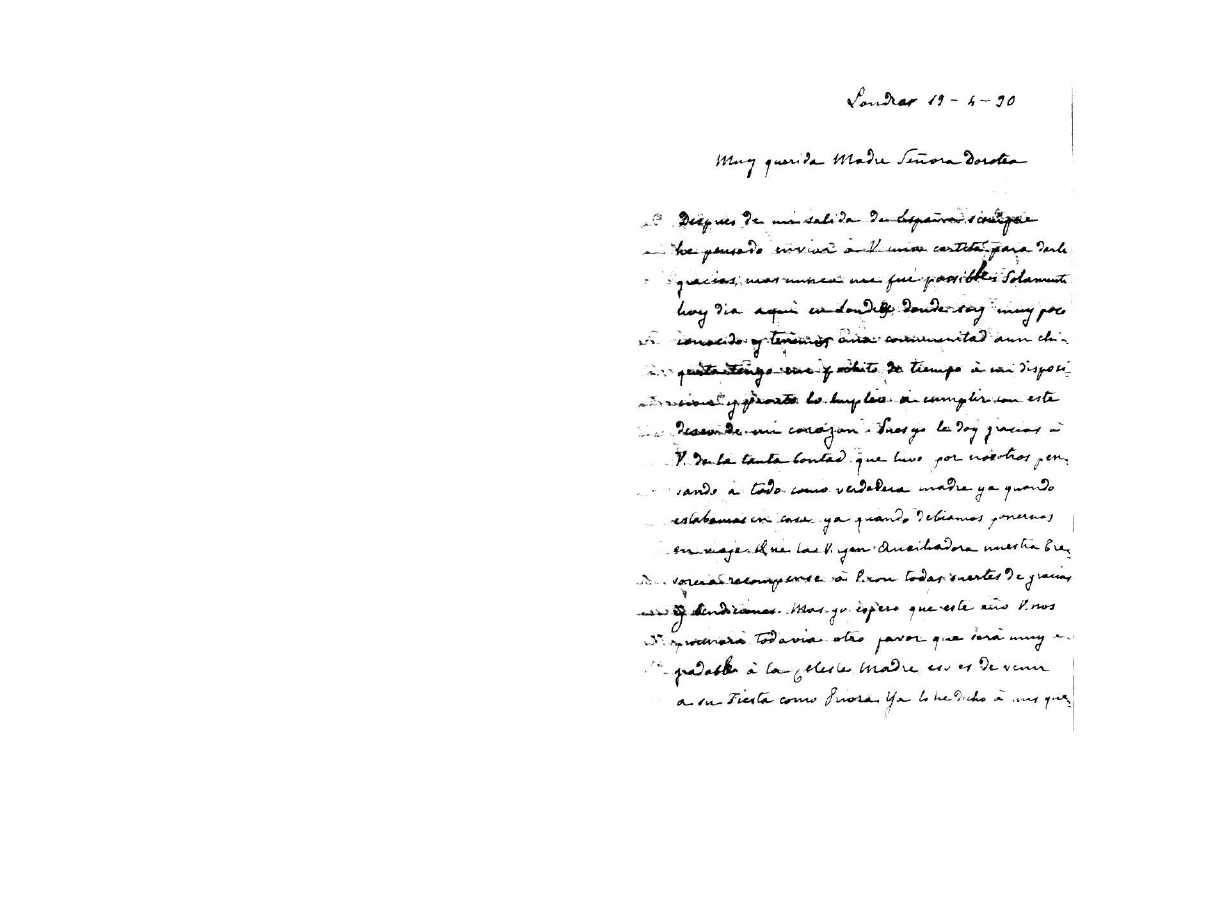 Londres 19-4-90
Muy querida Madre Señora Dorotea
Despues de mi salida de España siempre
he pensado enviar à V una cartita para darle
gracias, mas nunca me fué possible. Solamente
hoy dia aqui en Londres donde soy muy poco
conocido y tenemos una comunitad aun chi-
quita tengo un pochito de tiempo à mi disposi-
cion y pronto lo empleo a cumplir con este
deseo de mi corazon. Pues yo le doy gracias à
V. de la tanta bontad que tuvo por nosotros pen-
sando à todo como verdadera madre ya quando
estabamos en casa ya quando debiamos ponernos
en viaje. Que la V. gen Auxiliadora nuestra
recompense à V. con todas suertes de gracias
y bendiciones. Mas yo espero que este año V. nos
procurará todavia otro favor que será muy a-
gradable à la Celeste Madre eso es de venir
a su Fiesta como Priora. Ya lo he dicho à mis que-